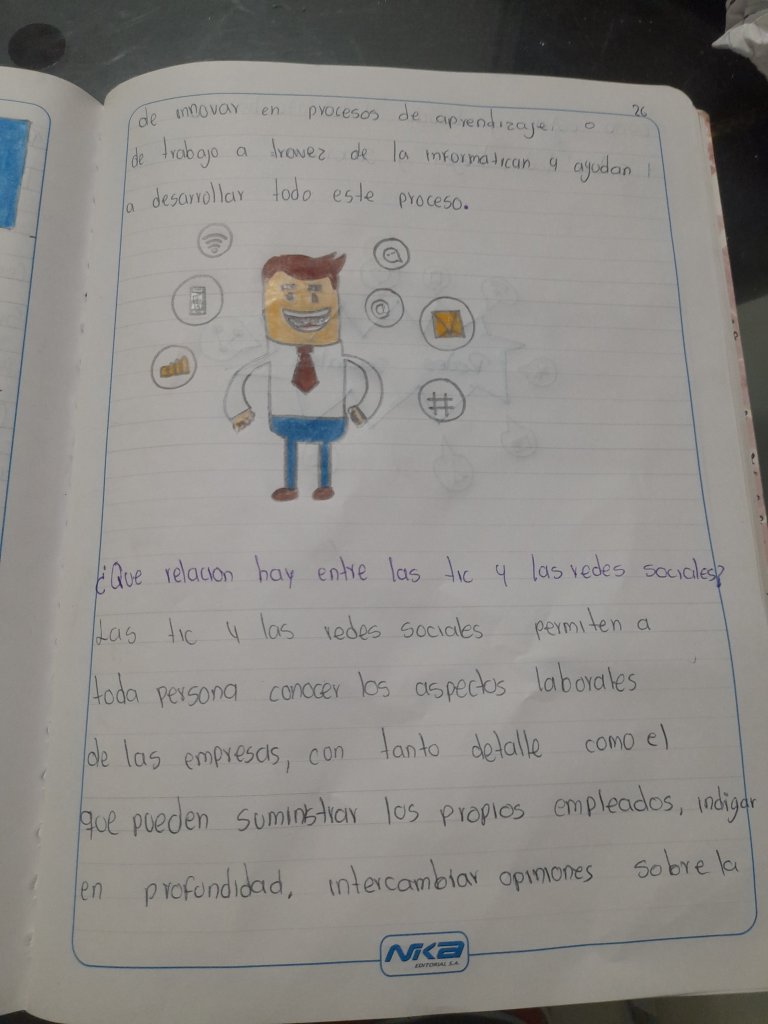 26
de innovar en procesos de aprendizaje, o
de trabajo a travez de la informatican y ayudan
a desarrollar todo este proceso.
@
#
¿Que relacion hay entre las tic y las redes sociales?
Las tic y las redes sociales permiten a
toda persona conocer los aspectos laborales
de las empresas, con tanto detalle como el
que pueden suminstrar los propios empleados, indigar
en profundidad, intercambiar opiniones sobre la
NIKA
EDITORIAL S.A.